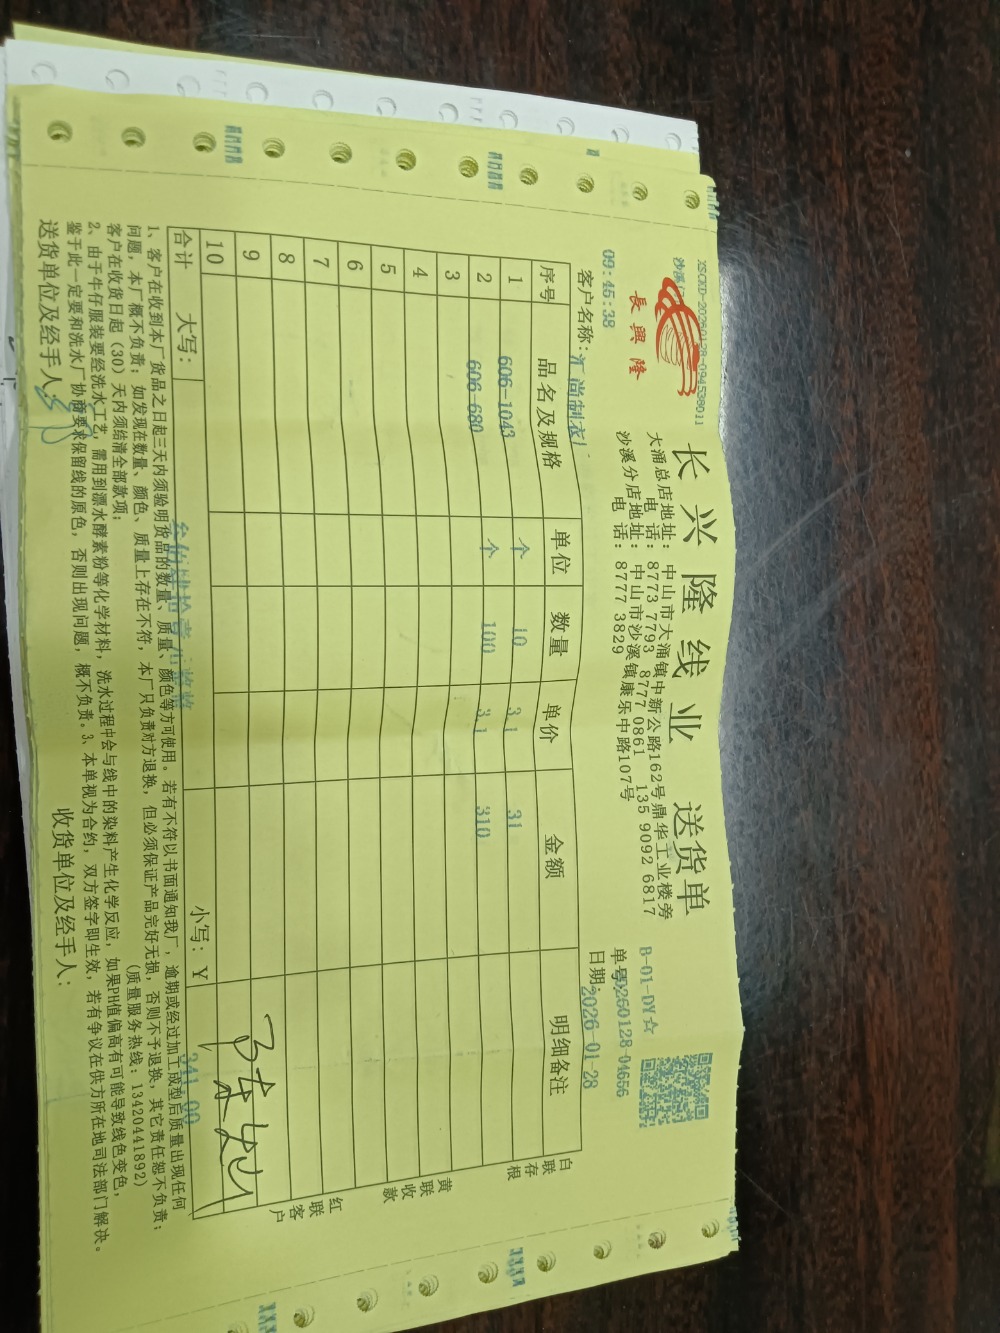 XSCKD-20260128-094538011
沙溪
長興隆
长兴隆线业 送货单
大涌总店地址：中山市大涌镇中新公路162号鼎华工业楼旁
电话：8773 7793 8777 0861 135 9092 6817
沙溪分店地址：中山市沙溪镇康乐中路107号
电话：8777 3829
B-01-DY☆
单号:20260128-04656
日期:2026-01-28
09:45:38
客户名称:汇尚制衣厂
序号 品名及规格 单位 数量 单价 金额 明细备注
1 606-1043 个 10 3.1 31
2 606-680 个 100 3.1 310
3
4
5
6
7
8
9
10
合计 大写： 叁佰肆拾壹元整 小写：¥ 341.00
白联存根
黄联收款
红联客户
1、客户在收到本厂货品之日起三天内须验明货品的数量、质量、颜色等方可使用。若有不符以书面通知我厂，逾期或经过加工成型后质量出现任何
问题，本厂概不负责；如发现在数量、颜色、质量上存在不符，本厂只负责对方退换，但必须保证产品完好无损，否则不予退换，其它责任恕不负责；
客户在收货日起（30）天内须结清全部款项； （质量服务热线：13420441892）
2、由于牛仔服装要经洗水工艺，需用到漂水酵素粉等化学材料，洗水过程中会与线中的染料产生化学反应，如果PH值偏高有可能导致线色变色，
鉴于此一定要和洗水厂协商要求保留线的原色，否则出现问题，概不负责。3、本单视为合约，双方签字即生效，若有争议在供方所在地司法部门解决。
送货单位及经手人： 收货单位及经手人：